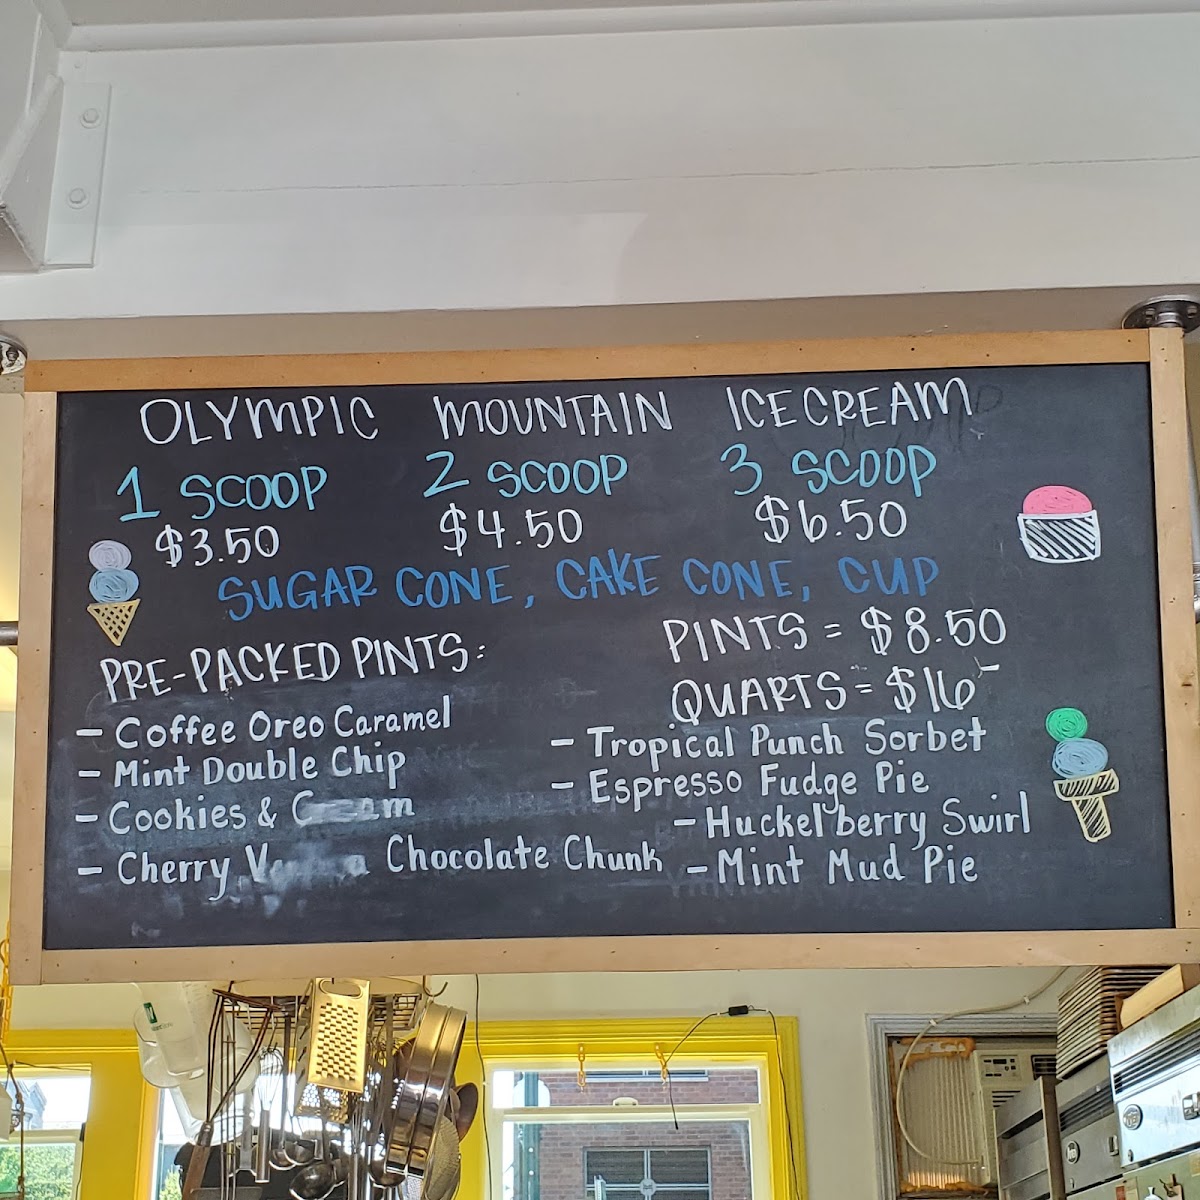 OLYMPIC MOUNTAIN ICE CREAM
1 SCOOP 2 SCOOP 3 SCOOP
$3.50 $4.50 $6.50
SUGAR CONE, CAKE CONE, CUP
PRE-PACKED PINTS:
- Coffee Oreo Caramel
- Mint Double Chip
- Cookies & Cream
- Cherry Chocolate Chunk
PINTS = $8.50
QUARTS = $16-
- Tropical Punch Sorbet
- Espresso Fudge Pie
- Huckelberry Swirl
- Mint Mud Pie